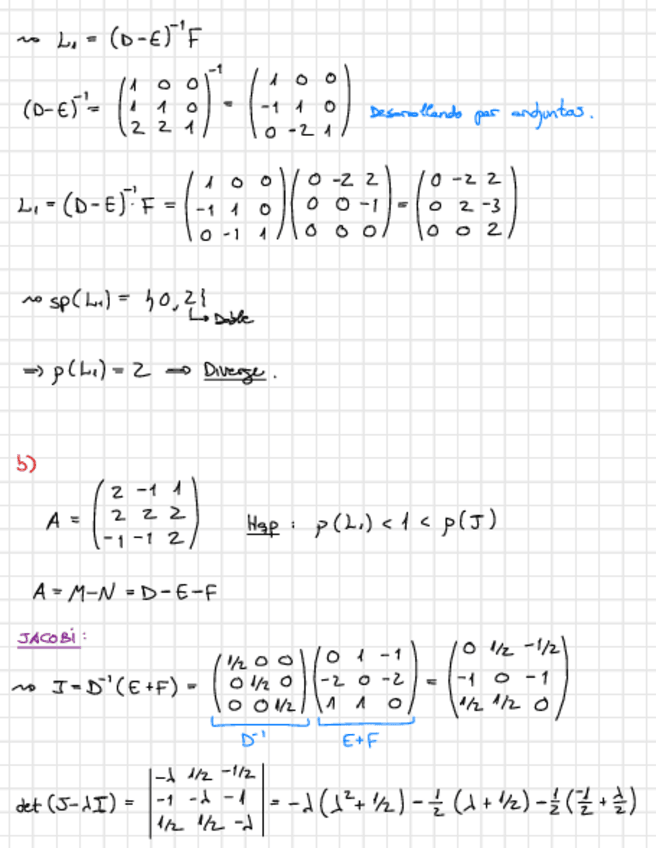 ⇝ L₁ = (D-E)⁻¹F
(D-E)⁻¹ = (1 0 0; 1 1 0; 2 2 1)⁻¹ = (1 0 0; -1 1 0; 0 -2 1) Desarrollando por adjuntos.
L₁ = (D-E)⁻¹·F = (1 0 0; -1 1 0; 0 -1 1)(0 -2 2; 0 0 -1; 0 0 0) = (0 -2 2; 0 2 -3; 0 0 2)
⇝ sp(L₁) = {0, 2}
↳ Doble
⇒ ρ(L₁) = 2 ⇒ Diverge.
b)
A = (2 -1 1; 2 2 2; -1 -1 2) Hgp : ρ(L₁) < 1 < ρ(J)
A = M-N = D-E-F
JACOBI:
⇝ J = D⁻¹(E+F) = (1/2 0 0; 0 1/2 0; 0 0 1/2)(0 1 -1; -2 0 -2; 1 1 0) = (0 1/2 -1/2; -1 0 -1; 1/2 1/2 0)
D⁻¹ E+F
det(J-λI) = |-λ 1/2 -1/2; -1 -λ -1; 1/2 1/2 -λ| = -λ(λ²+1/2) - 1/2(λ+1/2) - 1/2(-1/2+λ/2)